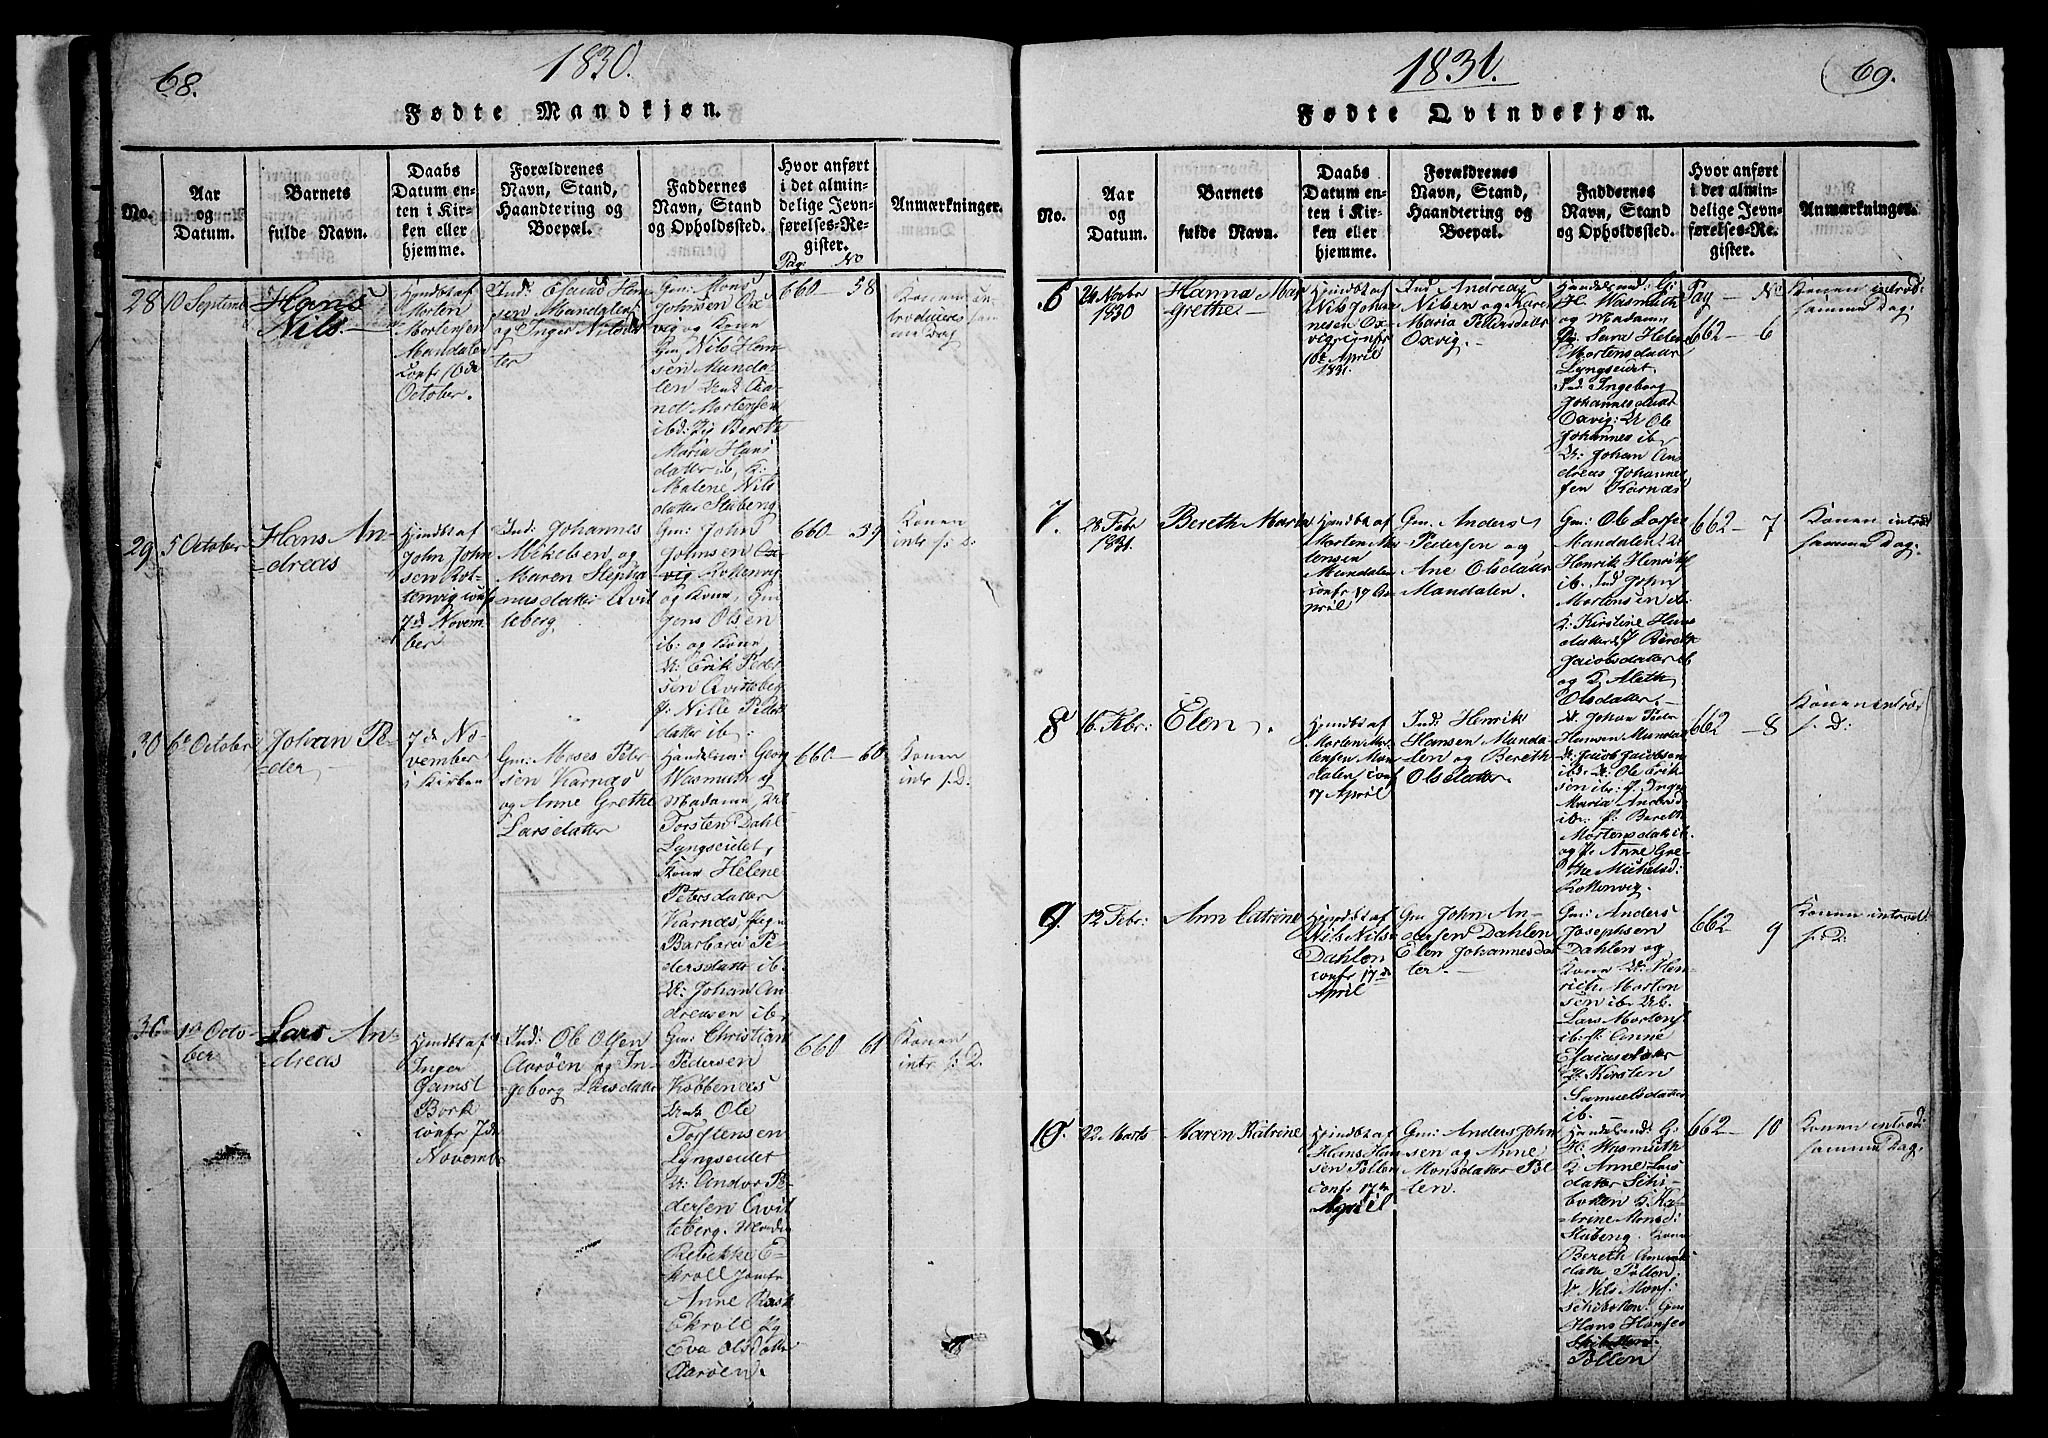 68.
1830.
Fødte Mandkjøn.
No.
Aar
og
Datum.
Barnets
fulde Navn.
Daabs
Datum en-
ten i Kir-
ken eller
hjemme.
Forældrenes
Navn, Stand,
Haandtering og
Boepæl.
Faddernes
Navn, Stand
og Opholdssted.
Hvor anført
i det almin-
delige Jevn-
førelses-Re-
gister.
Pag. No
Anmærkninger.
28
10 Septemb
Hans
Nils
Hjmdbt af
Morten
Mortensen
Mandalen
Confr 10de
October.
Ind: Esaias Han
sen Mandalen
og Inger Nilsdat
ter
Gm: Mons
Johnsen Ox
vig og Kone
Gm: Nils Han
sen Manda-
len
Mortensen
ibd: Pig Bereth
Maria Hans
datter ib,
Malene Nils
datter Stubeng
660 — 58
Konen in-
troduceres
samme Dag
29
5 October
Hans An-
dreas
Hjmdbt af
John John
sen Rot-
tenvig conf
7de Novem-
ber
Ind: Johannes
Mikelsen og
Maren Stepha
nusdatter Qvit
teberg
Gm: John
Johnsen Ox-
vig Rottenvig
og Kone, Gm
Jens Olsen
ib: og Kone
Erik Peder
sen Qvitteberg
p: Nille Peders
datter ib.
660 — 59
Konen
intr s: D:
30
6te October
Johan Pe-
der
7de No-
vember
i Kirken
Gm: Moses Peter
sen Karnæs
og Anne Grethe
Larsdatter
Handelsmd: Georg
Wasmuth og
Madame
Torsten Dahl
Lyngseidet,
Kone Helene
Petersdatter
Karnæs, Pige
Barbara Pe-
dersdatter ib.
Johan An
dreasen ib.
660 — 60
Konen
intr s: D:
1ste Octo-
ber
Lars An-
dreas
Hjmdbt af
Inger
Gamst
Bork
confr 7de
Novemb
Ind: Ole Olsen
Aarøen og In-
geborg Larsdatter
Gm: Christian
Pedersen
Kobbenæs
Ole
Torstensen
Lyngseidet
Andor Pe-
dersen Qvit
teberg. Madm
Rebekke E-
kroll Jomfr
Anne Rask
Ekroll Pg
Eva Olsdatter
Aarøen.
660 61
Konen
intr s: D.
1831.
69.
Fødte Qvindekjøn.
No.
Aar
og
Datum.
Barnets
fulde Navn.
Daabs
Datum en-
ten i Kir-
ken eller
hjemme.
Forældrenes
Navn, Stand,
Haandtering og
Boepæl.
Faddernes
Navn, Stand
og Opholdssted.
Hvor anført
i det almin-
delige Jevn-
førelses-Re-
gister.
Anmærkninger.
6
24 Novbr
1830
Hanna Mar
grethe
Hjmdbt af
Nils Johan
nesen Ox
vig confr
10de April
1831.
Ind Andreas
Nilsen og Karen
Maria Pedersdatter
Oxvig.
Handelsmd: G:
H. Wasmuth
og Madame
Sara Helene
Mortensdatter
Lyngseidet
Ind: Ingeborg
Johannesdatter
Oxvig: Ole
Johannes ib
Johan An
dreas Johannes
sen Karnæs
Pag — No
662 — 6
Konen introd
samme Dag:
7.
28 Febr
1831.
Bereth Maria
Hjmdbt af
Morten Mor
tensen
Mandalen
Confr 17 A
pril
Gm: Anders
Pedersen og
Ane Olsdatter
Mandalen.
Gm: Ole Larsen
Mandalen
Henrik Henriks
ib. Ind John
Mortensen ib.
K: Kirstine Hans
datter, Bereth
Jacobsdatter ib
og Aleth
Olsdatter.
662 — 7
Konen introd
samme Dag:
8
16 Febr:
Elen.
Hjmdbt af
Morten Mor
tensen Man
dalen, conf
17 April
Ind: Henrik
Hansen Manda-
len og Bereth
Olsdatter.
Johan Peter
Hansen Mandal
Jacob Jacobsen
ibd: Ole Erik
sen ib: Inger
Maria Andersd
ib: p: Bereth
Mortensdatr ib.
og Anne Gre-
the Mickelsd:
Rottenvig.
662 — 8
Konen introd
s. D:
9.
12 Febr:
Ann Catrine
Hjmdbt af
Nils Nilsen
Dahlen
confr 17de
April
Gm John An-
dersen Dahlen
Elen Johannesdat
ter.
Gm: Anders
Josephsen
Dahlen og
Kone Hen-
rich Morten
sen ib.
Lars Mortens
ib: p: Anne
Esaiasdatter
Kirsten
Samuelsdatter
ib.
662 — 9
Konen introd
s. D:
10.
22 Marts
Maren Katrine
Hjmdbt af
Hans Han
sen Pollen
confr 17de
April
Gm: Anders John
sen og Anne
Monsdatter Pol
len.
Handelsmd: G:
H. Wasmuth
K. Anne Lars
datter Schi-
botten K. Ka-
trine Monsd:
Stubeng. Kone
Bereth
datter Pollen:
Nils Mons:
Schibotten: Gm
Hans Hansen
Pollen
662 — 10
Konen introd
samme Dag: